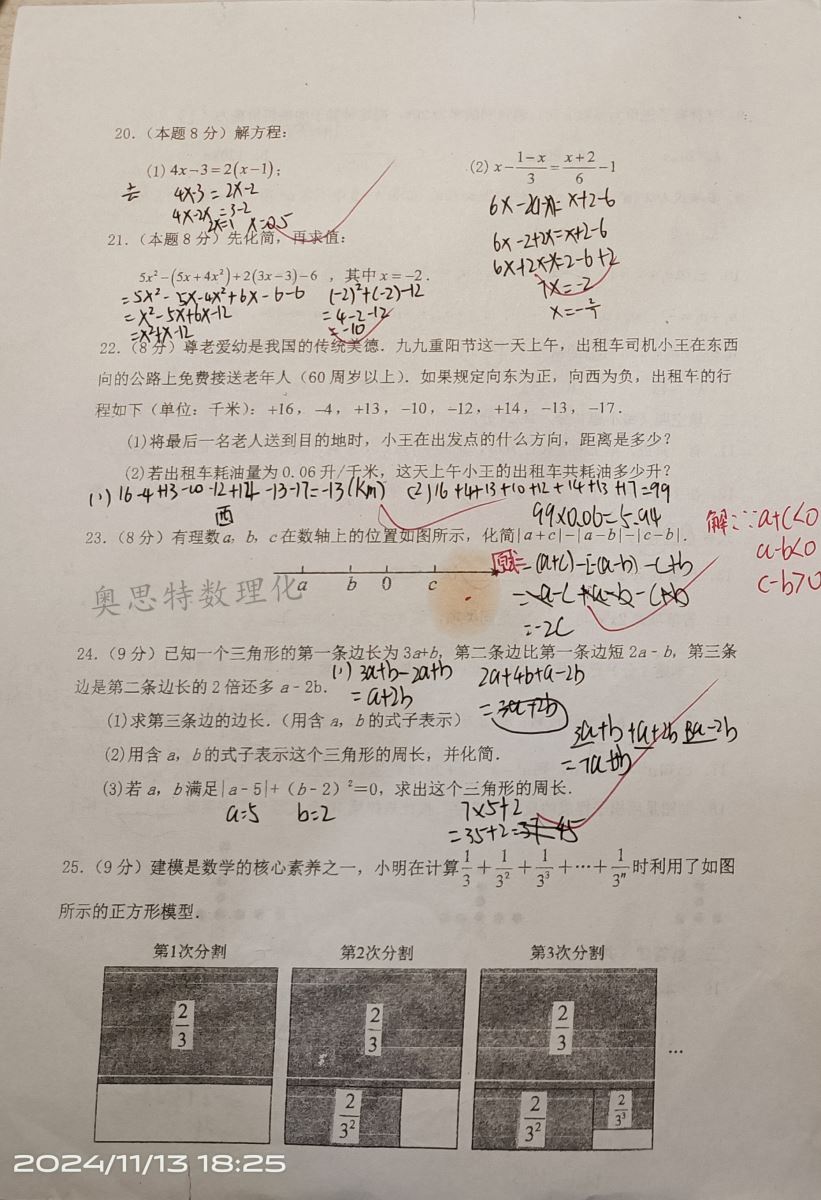 20.（本题8分）解方程:
(1) 4x－3＝2(x－1)；
(2) x－\frac{1－x}{3}＝\frac{x＋2}{6}－1
4x-3=2x-2
4x-2x=3-2
2x=1 x=0.5
6x-2(1-x)=x+2-6
6x-2+2x=x+2-6
6x+2x-x=2-6+2
7x=-2
x=-\frac{2}{7}
21.（本题8分）先化简，再求值:
5x²－(5x＋4x²)＋2(3x－3)－6 ，其中 x＝－2．
=5x²-5x-4x²+6x-6-6
=x²-5x+6x-12
=x²+x-12
(-2)²+(-2)-12
=4-2-12
=-10
22.（8分）尊老爱幼是我国的传统美德．九九重阳节这一天上午，出租车司机小王在东西
向的公路上免费接送老年人（60周岁以上）．如果规定向东为正，向西为负，出租车的行
程如下（单位：千米）：+16，－4，+13，－10，－12，+14，－13，－17．
(1)将最后一名老人送到目的地时，小王在出发点的什么方向，距离是多少？
(2)若出租车耗油量为0.06升/千米，这天上午小王的出租车共耗油多少升？
(1) 16-4+13-10-12+14-13-17=-13(km)
西
(2) 16+4+13+10+12+14+13+17=99
99×0.06=5.94
23.（8分）有理数a，b，c在数轴上的位置如图所示，化简|a＋c|－|a－b|－|c－b|．
a b 0 c
奥思特数理化
解:∵a+c<0
a-b<0
c-b>0
原式=-(a+c)-[-(a-b)]-c+b
=-a-c+a-b-c+b
=-2c
24.（9分）已知一个三角形的第一条边长为3a+b，第二条边比第一条边短2a－b，第三条
边是第二条边长的2倍还多a－2b．
(1)求第三条边的边长．（用含a，b的式子表示）
(2)用含a，b的式子表示这个三角形的周长，并化简．
(3)若a，b满足|a－5|＋（b－2）²＝0，求出这个三角形的周长．
(1) 3a+b-2a+b
=a+2b
2a+4b+a-2b
=3a+2b
a=5 b=2
7×5+2
25.（9分）建模是数学的核心素养之一，小明在计算\frac{1}{3}＋\frac{1}{3²}＋\frac{1}{3³}＋…＋\frac{1}{3ⁿ}时利用了如图
所示的正方形模型．
第1次分割 第2次分割 第3次分割
\frac{2}{3} \frac{2}{3} \frac{2}{3}
…
\frac{2}{3²} \frac{2}{3²} \frac{2}{3³}
2024/11/13 18:25